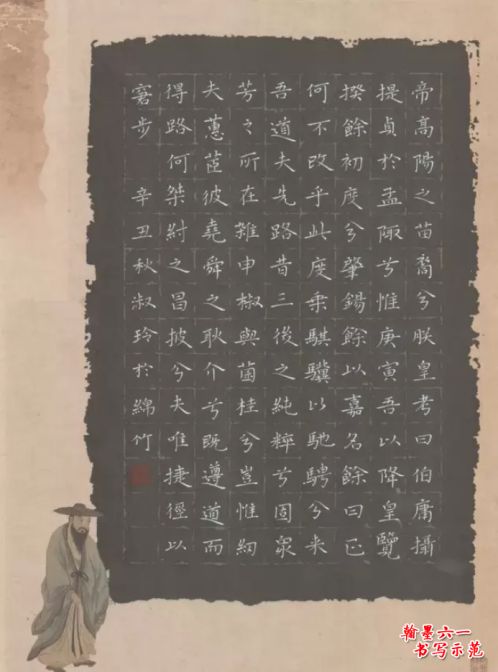 帝高陽之苗裔兮朕皇考曰伯庸攝
提貞於孟陬兮惟庚寅吾以降皇覽
揆餘初度兮肇錫餘以嘉名餘曰正
何不改乎此度乘騏驥以馳騁兮来
吾道夫先路昔三後之純粹兮固眾
芳々所在雜申椒與菌桂兮豈惟紉
夫蕙茝彼堯舜之耿介兮既遵道而
得路何桀紂之昌披兮夫唯捷徑以
窘步 辛丑秋淑玲於綿竹
翰墨六一
书写示范